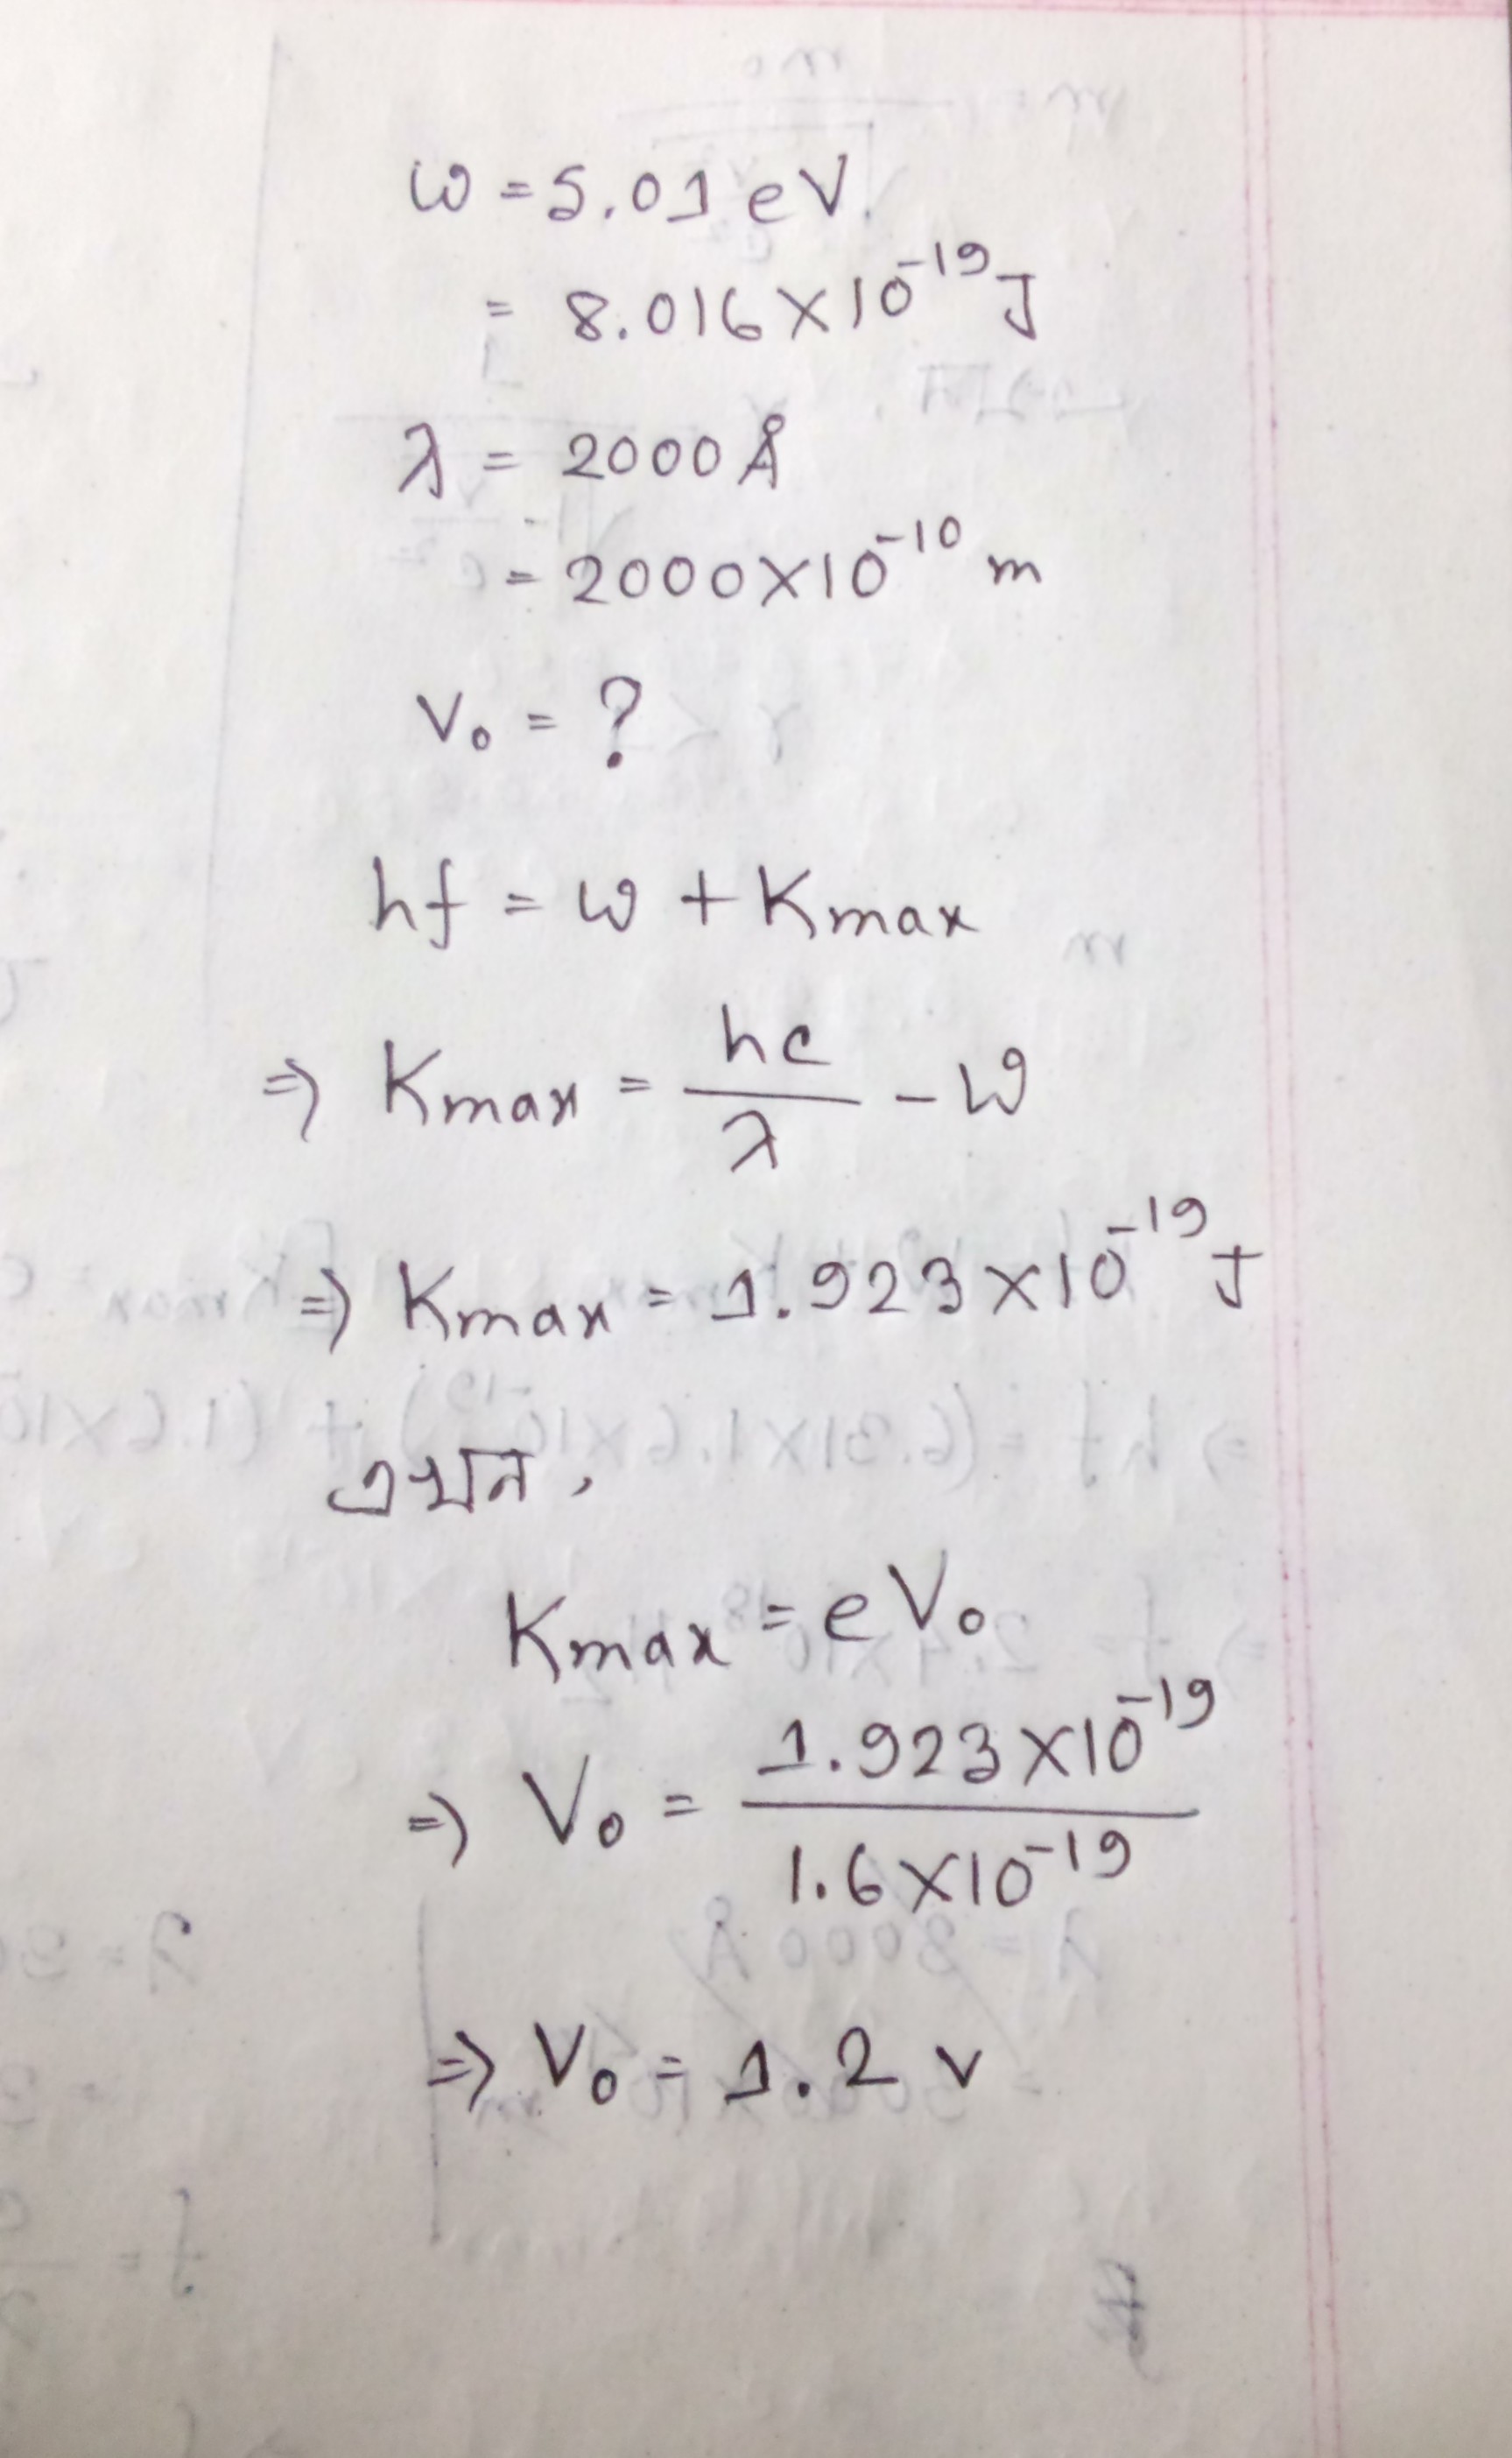 W = 5.01 eV
= 8.016 × 10⁻¹⁹ J
λ = 2000 Å
= 2000 × 10⁻¹⁰ m
V₀ = ?
hf = W + Kmax
⇒ Kmax = hc/λ - W
⇒ Kmax = 1.923 × 10⁻¹⁹ J
এখন,
Kmax = eV₀
⇒ V₀ = 1.923 × 10⁻¹⁹ / 1.6 × 10⁻¹⁹
⇒ V₀ = 1.2 v